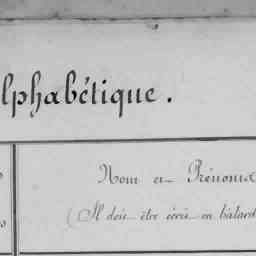 lphabétique.
Nom et Prénoms
(Il doit être écrit en bâtard